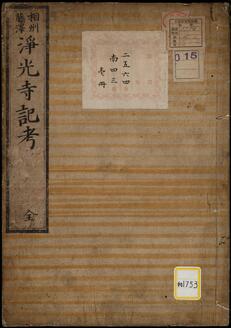 相州
藤澤
淨光寺記考
全
二五六四
南四三
壱冊
015
1753